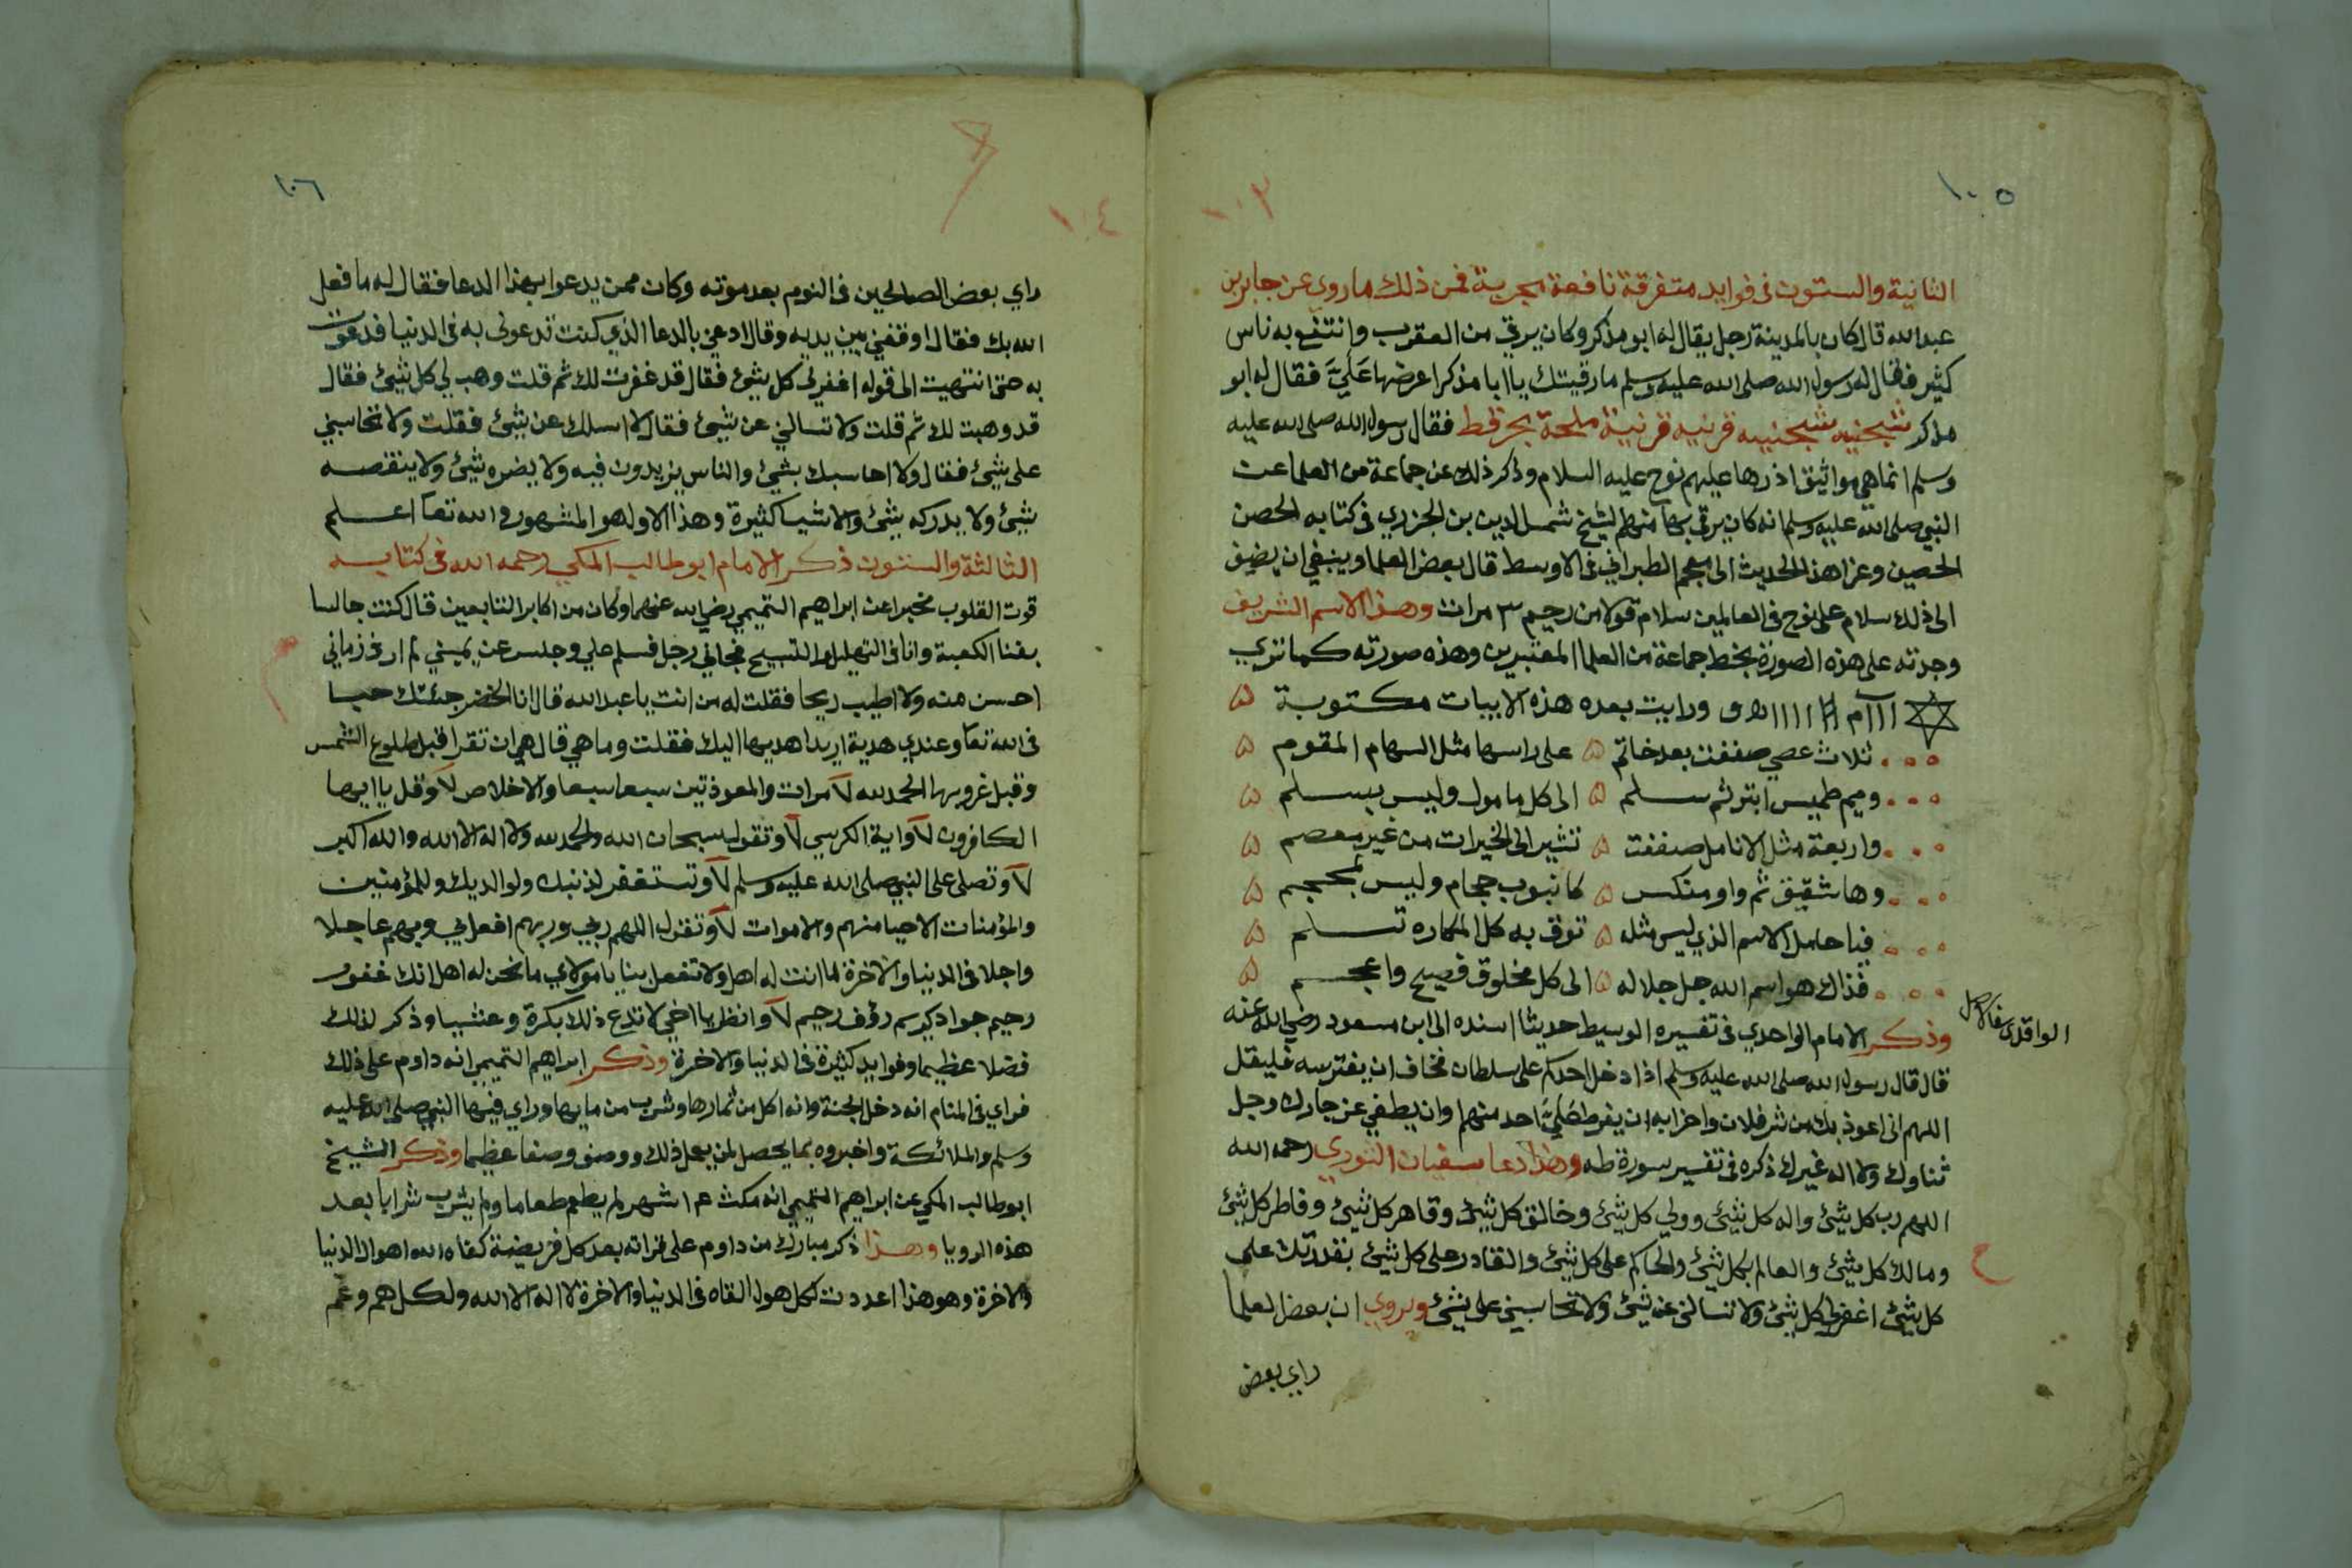 ١٠٥
١٠٣
الثانية والستون في فوايد متفرقة نافعة مجربة فمن ذلك ما روي عن جابر بن
عبد الله قال كان بالمدينة رجل يقال له ابو مذكر وكان يرقي من العقرب وانتفع به ناس
كثير فقال له رسول الله صلى الله عليه وسلم ما رقيتك يا ابا مذكر اعرضها عَلَيَّ فقال له ابو
مذكر شجنيه شجنيه قرنيه قرنية ملحة بحر قطط فقال رسول الله صلى الله عليه
وسلم انما هي مواثيق اخذها عليهم نوح عليه السلام وذكر ذلك عن جماعة من العلما عن
النبي صلى الله عليه وسلم انه كان يرقي بها منهم الشيخ شمس الدين بن الجزري في كتابه الحصن
الحصين وعزا هذا الحديث الى معجم الطبراني في الاوسط قال بعض العلما وينبغي ان يضيف
الى ذلك سلام على نوح في العالمين سلام قولا من رب رحيم ٣ مرات وهذا الاسم الشريف
وجدته على هذه الصورة بخط جماعة من العلما المعتبرين وهذه صورته كما ترى
ورايت بعده هذه الابيات مكتوبة ۵
ثلاث عصي صففت بعد خاتم ۵ على راسها مثل السهام المقوم ۵
وميم طميس ابتر ثم سلم ۵ الى كل مامول وليس بسلم ۵
واربعة مثل الانامل صففت ۵ تشير الى الخيرات من غير معصم ۵
وها شقيق ثم واو منكس ۵ كانبوب حجام وليس بمحجم ۵
فيا حامل الاسم الذي ليس مثله ۵ توق به كل المكاره تسلم ۵
فذاك هو اسم الله جل جلاله ۵ الى كل مخلوق فصيح واعجم ۵
وذكر الامام الواحدي في تفسيره الوسيط حديثا اسنده الى ابن مسعود رضي الله عنه
الواقدي
قال قال رسول الله صلى الله عليه وسلم اذا دخل احدكم على سلطان تخاف ان يفترسه فليقل
اللهم اني اعوذ بك من شر فلان واحزابه ان يفرط عَلَيَّ احد منهم او ان يطغى عز جارك وجل
ثناوك ولا اله غيرك ذكره في تفسير سورة طه وهذا دعا سفيان الثوري رحمه الله
اللهم رب كل شيئ واله كل شيئ وولي كل شيئ وخالق كل شيئ وقاهر كل شيئ وفاطر كل شيئ
ومالك كل شيئ والعالم بكل شيئ والحاكم على كل شيئ والقادر على كل شيئ بقدرتك على
كل شيئ اغفرلي كل شيئ ولا تسالني عن شيئ ولا تحاسبني على شيئ ويروي ان بعض العلما
راي بعض
١٠٦
١٠٤
راي بعض الصالحين في النوم بعد موته وكان ممن يدعوا بهذا الدعا فقال له ما فعل
الله بك فقال اوقفني بين يديه وقال ادعني بالدعا الذي كنت تدعوني به في الدنيا فدعوت
به حتى انتهيت الى قوله اغفر لي كل شيئ فقال قد غفرت لك ثم قلت وهب لي كل شيئ فقال
قد وهبت لك ثم قلت ولا تسالني عن شيئ فقال لا اسلك عن شيئ فقلت ولا تحاسبني
على شيئ فقال ولا احاسبك بشيئ والناس يزيدون فيه ولا يضره شيئ ولا ينقصه
شيئ ولا يدركه شيئ والاشيا كثيرة وهذا الاول هو المشهور والله تعا اعلم
الثالثة والستون ذكر الامام ابو طالب المكي رحمه الله في كتابه
قوت القلوب مخبرا عن ابراهيم التميمي رضي الله عنهما وكان من اكابر التابعين قال كنت جالسا
بفنا الكعبة وانا في التهليل والتسبيح فجاني رجل فسلم علي وجلس عن يميني لم ار في زماني
احسن منه ولا اطيب ريحا فقلت له من انت يا عبد الله قال انا الخضر جئتك حبا
في الله تعا وعندي هدية اريد اهديها اليك فقلت وما هي قال هي ان تقرا قبل طلوع الشمس
وقبل غروبها الحمد لله ٧ مرات والمعوذتين سبعا سبعا والاخلاص ٧ وقل يا ايها
الكافرون ٧ واية الكرسي ٧ وتقول سبحان الله والحمد لله ولا اله الا الله والله اكبر
٧ وتصلى على النبي صلى الله عليه وسلم ٧ وتستغفر لذنبك ولوالديك وللمؤمنين
والمؤمنات الاحيا منهم والاموات ٧ وتقول اللهم ربي وربهم افعل بي وبهم عاجلا
واجلا في الدنيا والاخرة لما انت له اهل ولا تفعل بنا يا مولاي ما نحن له اهل انك غفور
رحيم جواد كريم رؤف رحيم ٧ وانظر يا اخي لا تدع ذلك بكرة وعشيا وذكر لذلك
فضلا عظيما وفوايد كثيرة في الدنيا والاخرة وذكر ابراهيم التميمي انه داوم على ذلك
فراي في المنام انه دخل الجنة وانه اكل من ثمارها وشرب من مايها وراي فيها النبي صلى الله عليه
وسلم والملائكة واخبروه بما يحصل لمن يعمل ذلك ووصف وصفا عظيما وذكر الشيخ
ابو طالب المكي عن ابراهيم التميمي انه مكث ٤ اشهر لم يطعم طعاما ولم يشرب شرابا بعد
هذه الرويا وهذا ذكر مبارك من داوم على قراته بعد كل فريضة كفاه الله اهوال الدنيا
والاخرة وهو هذا اعددت لكل هول القاه في الدنيا والاخرة لا اله الا الله ولكل هم وغم